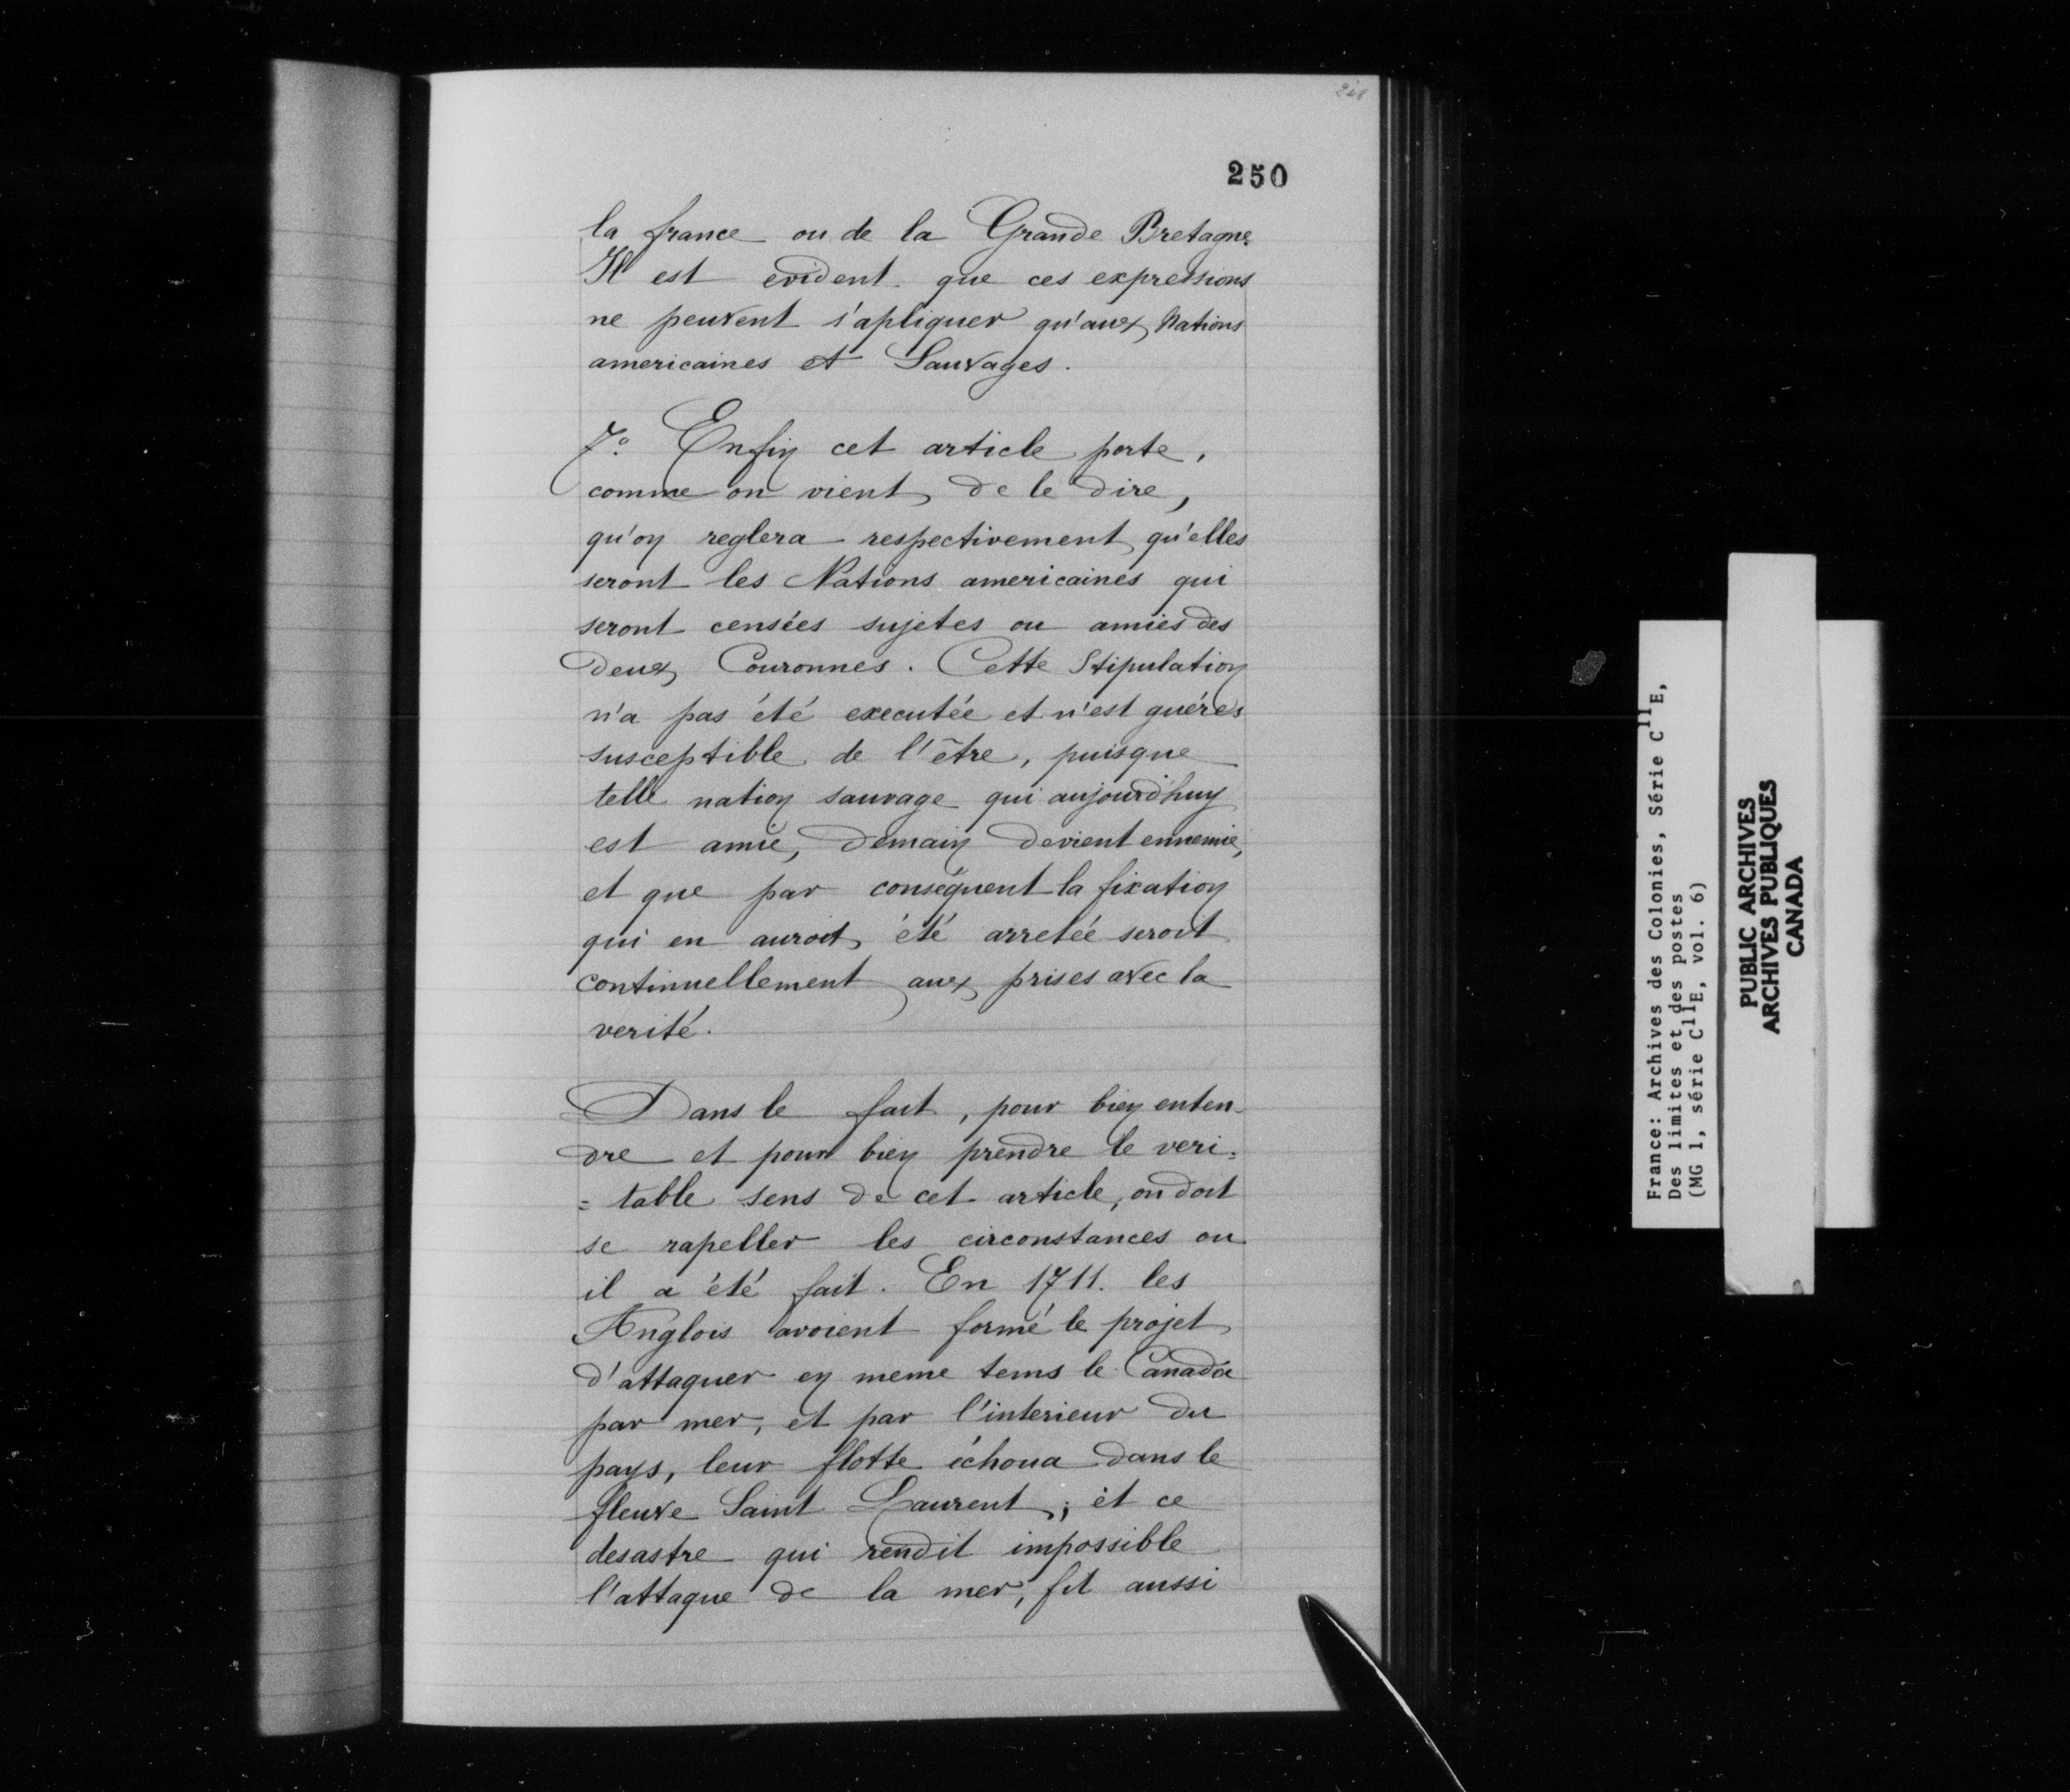 250
la france ou de la Grande Bretagne.
Il est evident que ces expressions
ne peuvent s'apliquer qu'aux Nations
americaines et Sauvages.
7.° Enfin cet article porte,
comme on vient de le dire,
qu'on reglera respectivement qu'elles
seront les Nations americaines qui
seront censées sujetes ou amies des
deux Couronnes. Cette Stipulation
n'a pas été executée et n'est guéres
susceptible de l'être, puisque
telle nation sauvage qui aujourd'huy
est amie, demain devient ennemie,
et que par conséquent la fixation
qui en auroit été arretée seroit
continuellement aux prises avec la
verité.
Dans le fait, pour bien enten-
dre et pour bien prendre le veri=
=table sens de cet article, on doit
se rapeller les circonstances ou
il a été fait. En 1711. les
Anglois avoient formé le projet
d'attaquer en meme tems le Canada
par mer, et par l'interieur du
pays, leur flotte échoua dans le
fleuve Saint Laurent; et ce
desastre qui rendit impossible
l'attaque de la mer, fit aussi
France: Archives des Colonies, Série C11E,
Des limites et des postes
(MG 1, série C11E, vol. 6)
PUBLIC ARCHIVES
ARCHIVES PUBLIQUES
CANADA